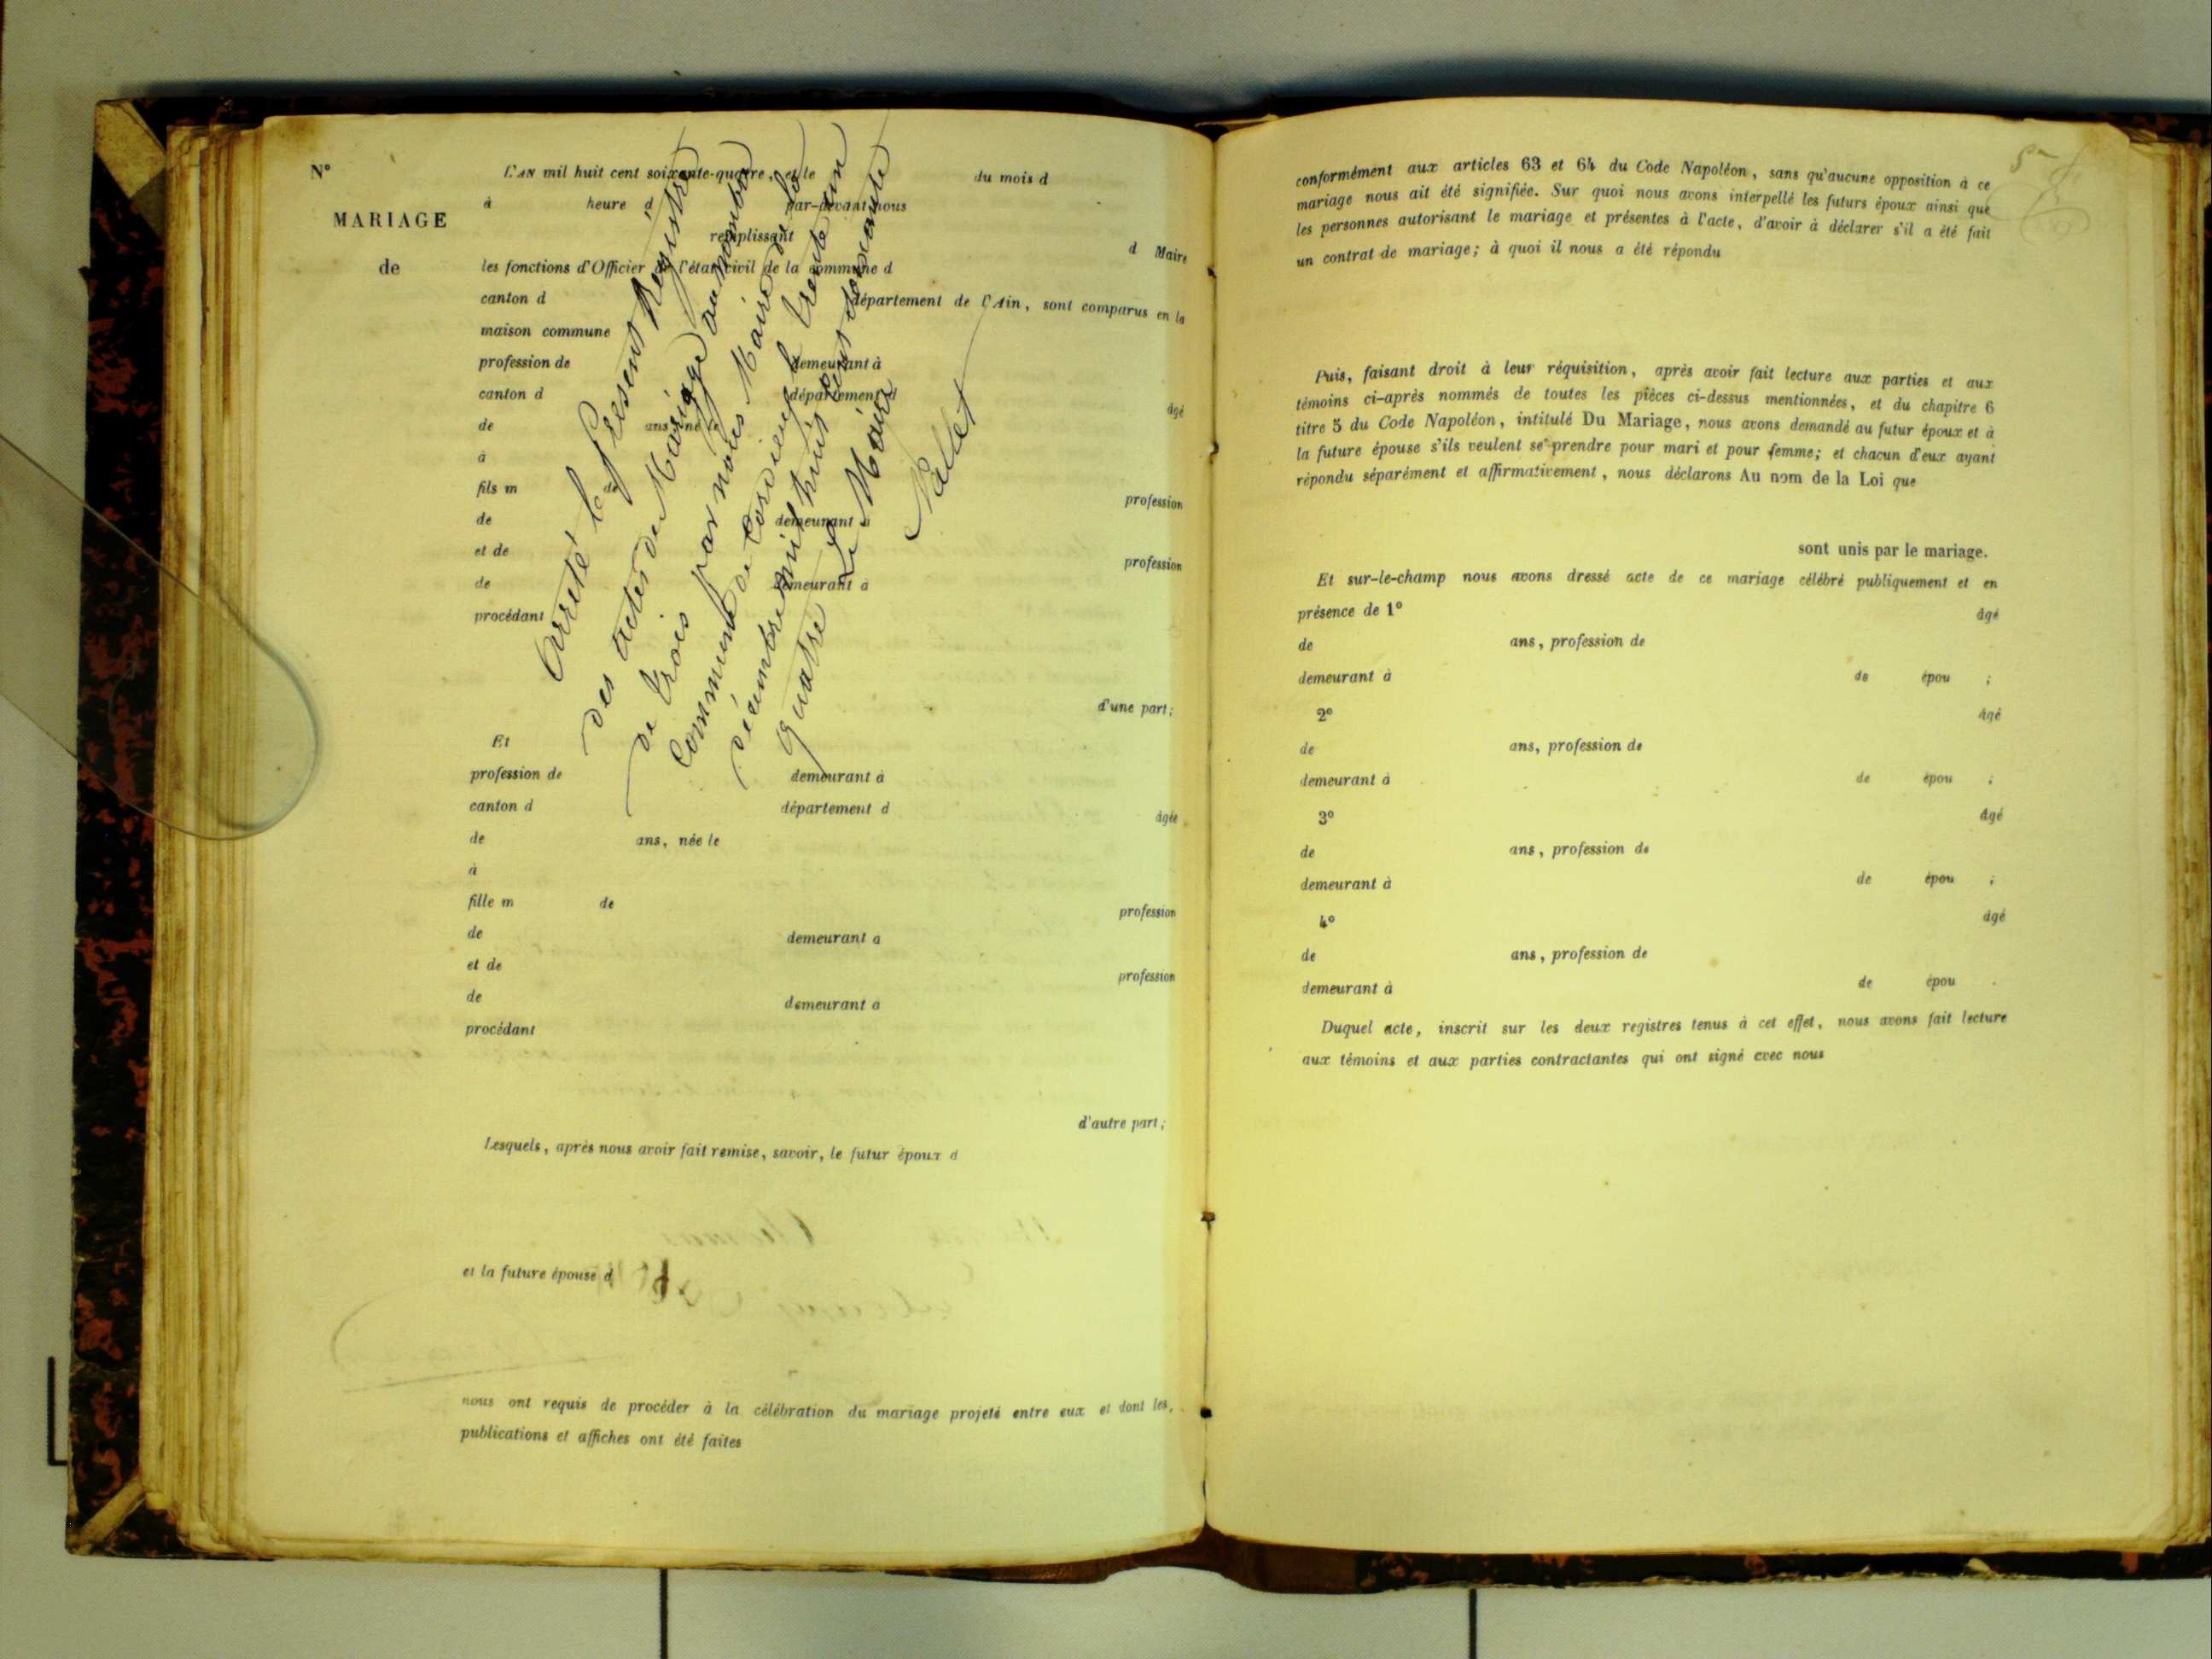 N°
MARIAGE
de
L'AN mil huit cent soixante-quatre, et le du mois d
à heure d par-devant nous
remplissant d Maire
les fonctions d'Officier de l'état civil de la commune d
canton d département de l'Ain, sont comparus en la
maison commune
profession de demeurant à
canton d département d âgé
de ans, né le
à
fils m de profession
de demeurant à
et de profession
de demeurant à
procédant
d'une part;
Et
profession de demeurant à
canton d département d âgée
de ans, née le
à
fille m de profession
de demeurant a
et de profession
de demeurant à
procédant
d'autre part;
Lesquels, après nous avoir fait remise, savoir, le futur époux d
et la future épouse d
nous ont requis de procéder à la célébration du mariage projeté entre eux et dont les
publications et affiches ont été faites
Arrêté le présent Registre
des actes de Mariage au nombre
de trois par nous Maire de la
Commune de Cordieux le trente un
décembre mil huit cent soixante
quatre Le Maire
Nallet
conformément aux articles 63 et 64 du Code Napoléon, sans qu'aucune opposition à ce
mariage nous ait été signifiée. Sur quoi nous avons interpellé les futurs époux ainsi que
les personnes autorisant le mariage et présentes à l'acte, d'avoir à déclarer s'il a été fait
un contrat de mariage; à quoi il nous a été répondu
Puis, faisant droit à leur réquisition, après avoir fait lecture aux parties et aux
témoins ci-après nommés de toutes les pièces ci-dessus mentionnées, et du chapitre 6
titre 5 du Code Napoléon, intitulé Du Mariage, nous avons demandé au futur époux et à
la future épouse s'ils veulent se prendre pour mari et pour femme; et chacun d'eux ayant
répondu séparément et affirmativement, nous déclarons Au nom de la Loi que
sont unis par le mariage.
Et sur-le-champ nous avons dressé acte de ce mariage célébré publiquement et en
présence de 1° âgé
de ans, profession de
demeurant à de épou ;
2° âgé
de ans, profession de
demeurant à de épou ;
3° âgé
de ans, profession de
demeurant à de épou ;
4° âgé
de ans, profession de
demeurant à de épou .
Duquel acte, inscrit sur les deux registres tenus à cet effet, nous avons fait lecture
aux témoins et aux parties contractantes qui ont signé avec nous